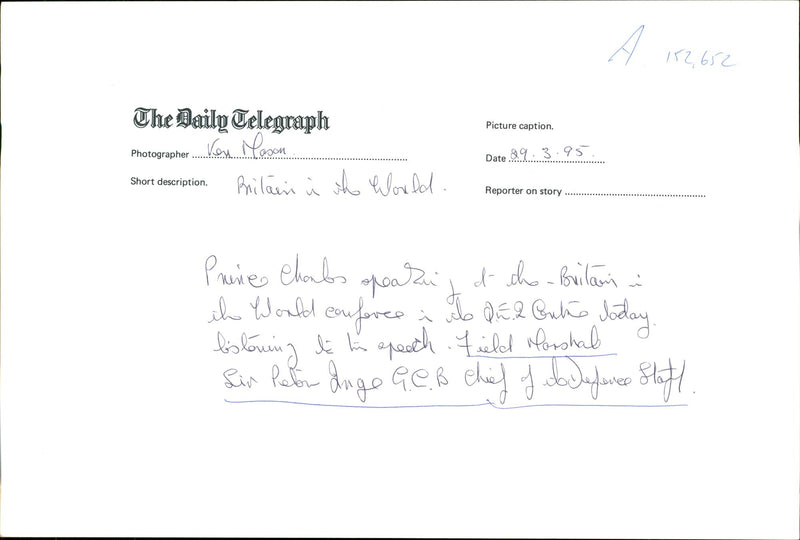 A 152,652
The Daily Telegraph
Picture caption.
Photographer Ken Mason
Date 29.3.95.
Short description. Britain in the World.
Reporter on story
Prince Charles speaking at the - Britain in
the World conference in the Q.E.2 Centre today.
listening to his speech. Field Marshal
Sir Peter Inge G.C.B Chief of the Defence Staff.